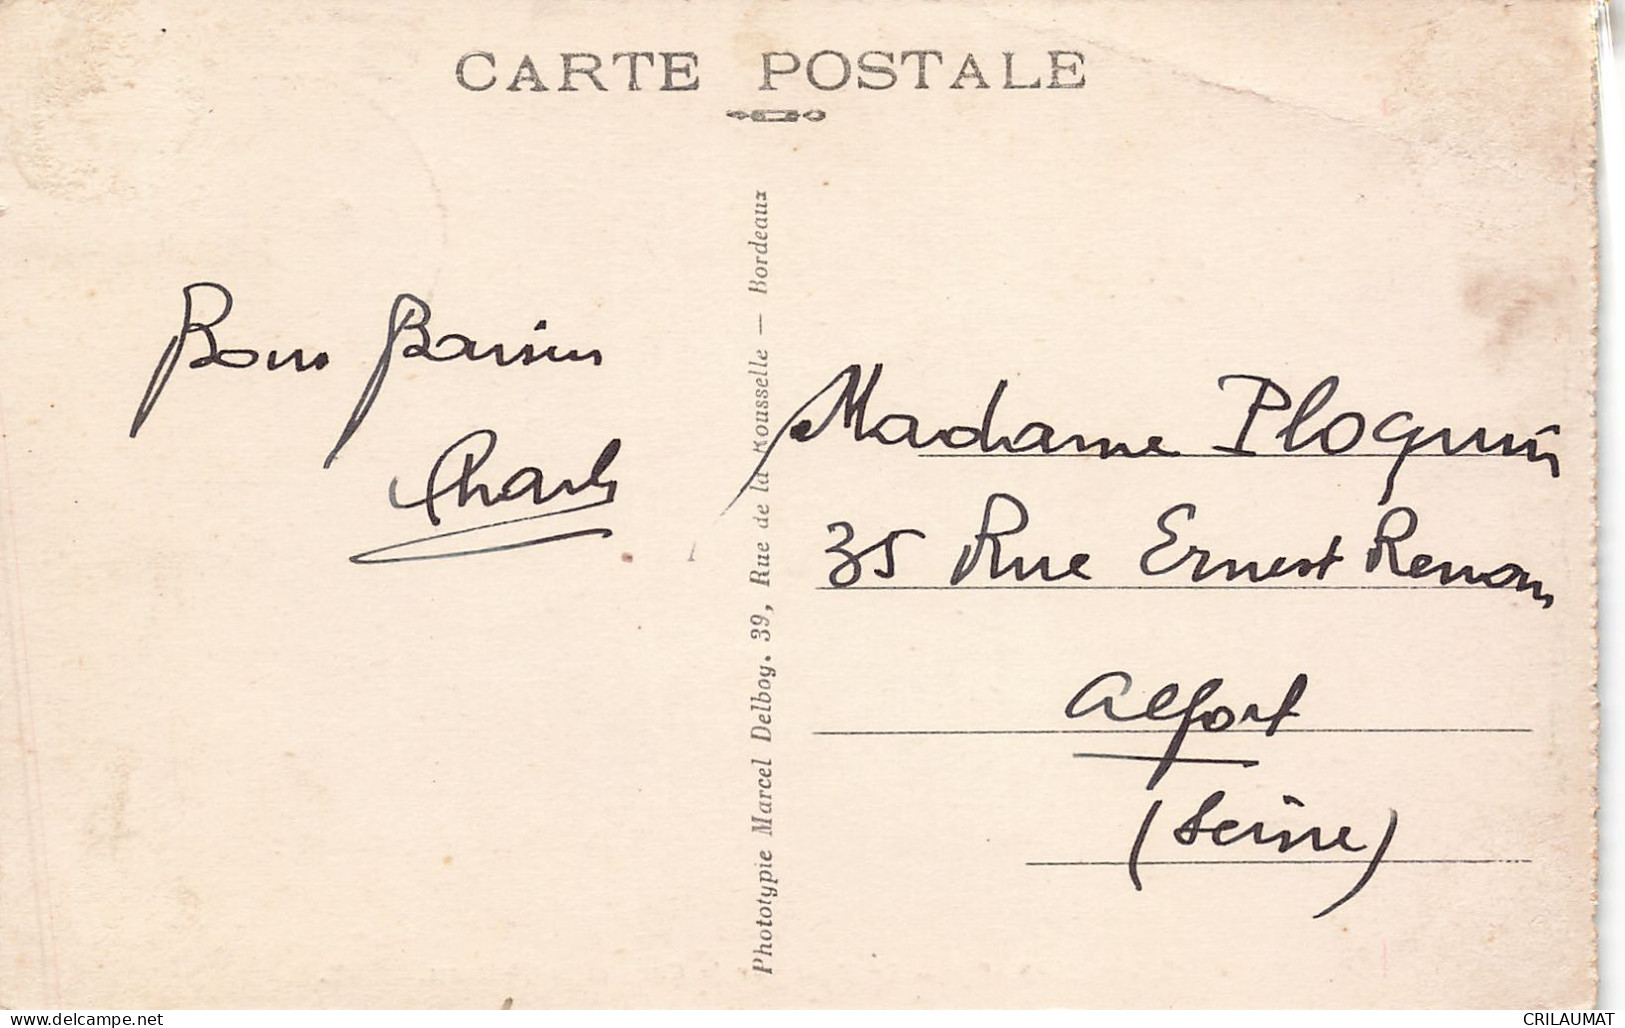 CARTE POSTALE
Bons Baisers
Charles
Phototypie Marcel Delboy. 39, Rue de la Rousselle — Bordeaux
Madame Ploquin
35 Rue Ernest Renan
Alfort
(Seine)
www.delcampe.net
CRILAUMAT